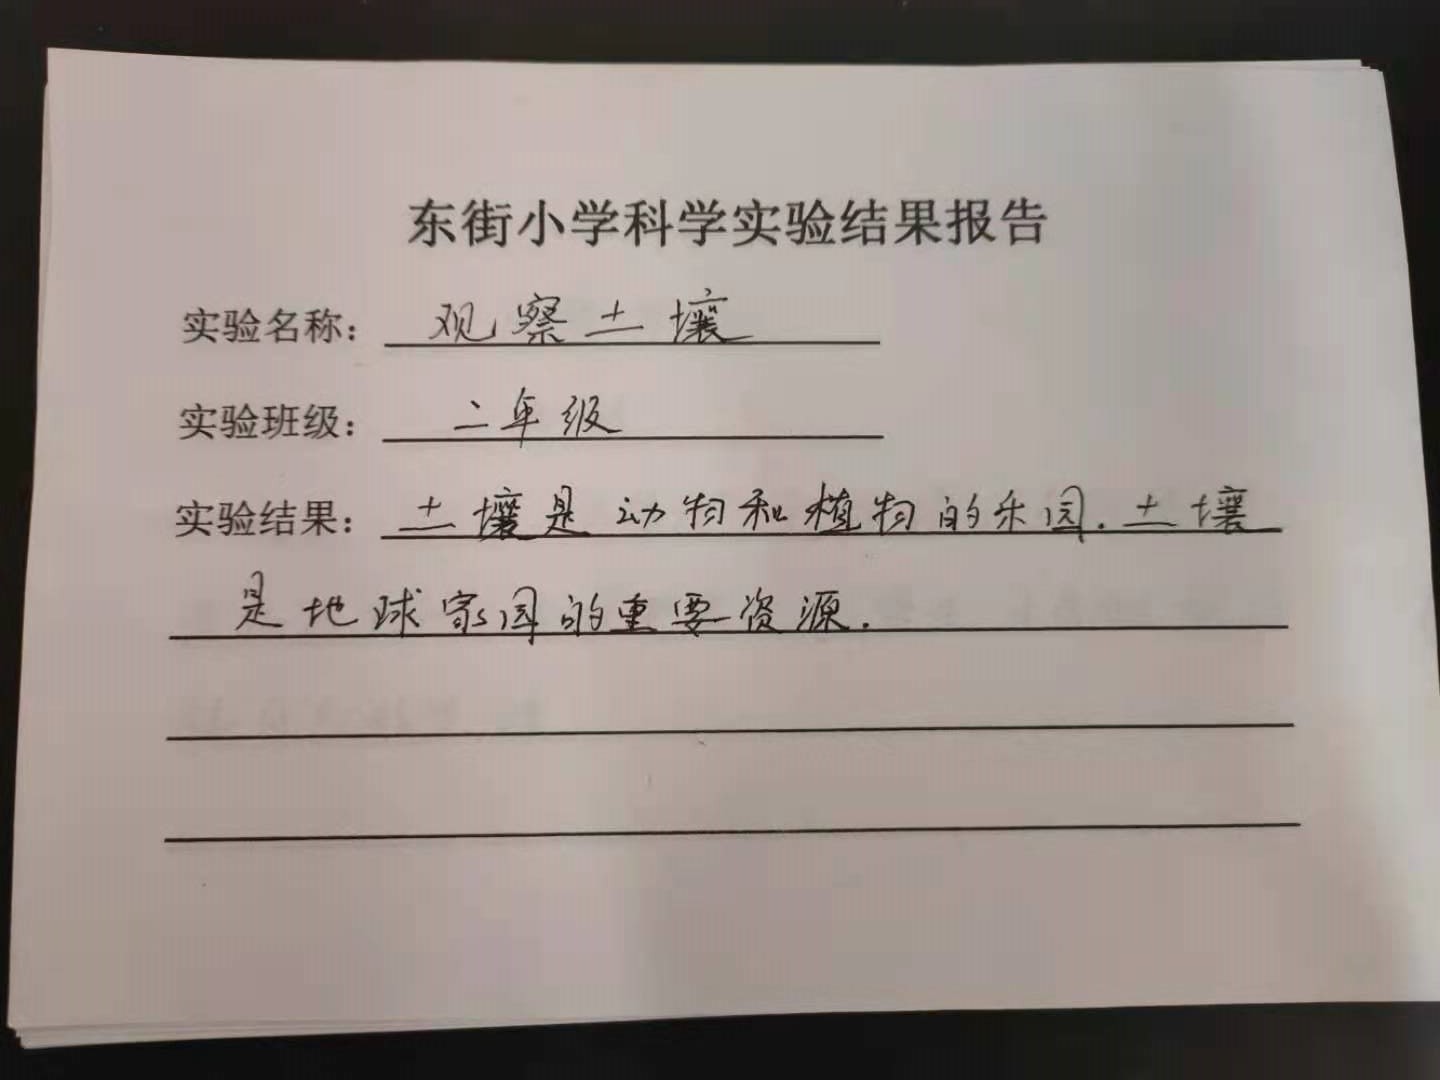 东街小学科学实验结果报告
实验名称：观察土壤
实验班级：二年级
实验结果：土壤是动物和植物的乐园.土壤
是地球家园的重要资源.